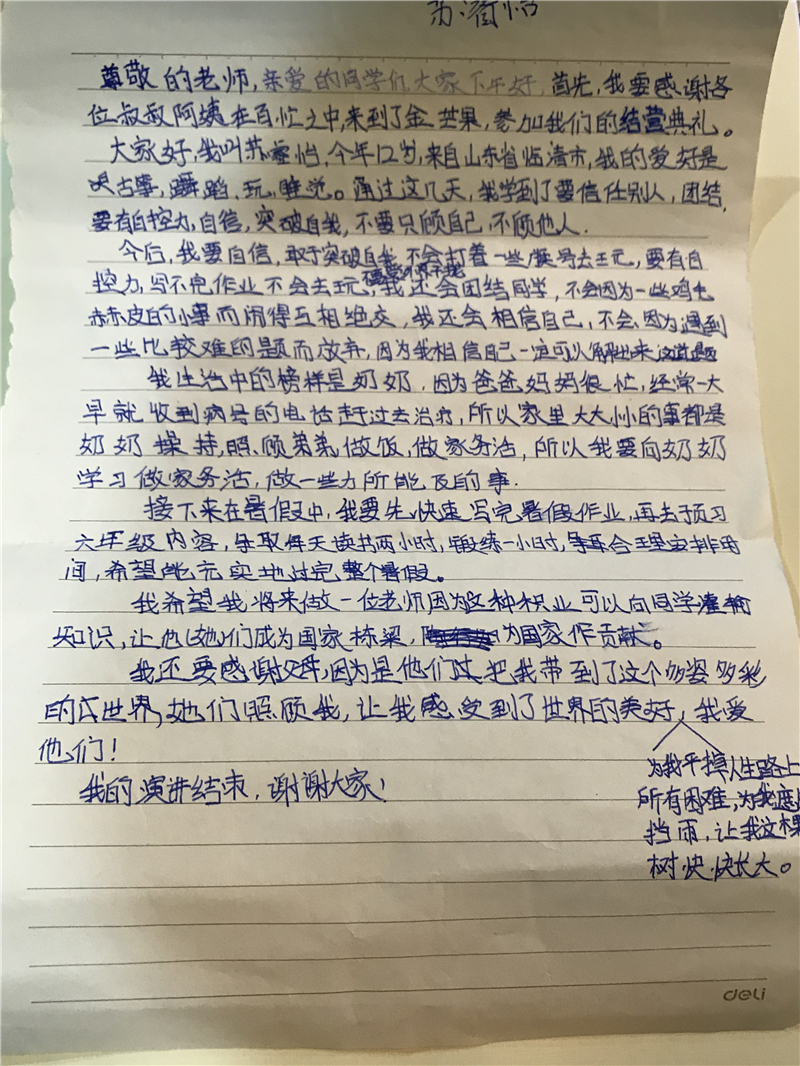 苏睿怡
尊敬的老师，亲爱的同学们大家下午好，首先，我要感谢各
位叔叔阿姨在百忙之中，来到了金芒果，参加我们的结营典礼。
大家好，我叫苏睿怡，今年12岁，来自山东省临清市，我的爱好是
古筝，舞蹈、玩，睡觉。通过这几天，我学到了要信任别人，团结，
要有自控力，自信，突破自我，不要只顾自己，不顾他人．
今后，我要自信，敢于突破自我，不会打着一些旗号去玩，要有自
控力，写不完作业不会去玩，我还会团结同学，不会因为一些鸡毛
蒜皮的小事而闹得互相绝交，我还会相信自己，不会因为遇到
一些比较难的题而放弃，因为我相信自己一定可以解出来这道题
我生活中的榜样是奶奶，因为爸爸妈妈很忙，经常一大
早就收到病号的电话赶过去治疗，所以家里大大小小的事都是
奶奶操持，照顾弟弟，做饭，做家务活，所以我要向奶奶
学习做家务活，做一些力所能及的事．
接下来在暑假中，我要先快速写完暑假作业，再去预习
六年级内容，争取每天读书两小时，锻练一小时，争取合理安排时
间，希望能充实地过完整个暑假。
我希望我将来做一位老师因为这种职业可以向同学灌输
知识，让他(她)们成为国家栋梁，为国家作贡献。
我还要感谢父母，因为是他们把我带到了这个多姿多彩
的世界，她们照顾我，让我感受到了世界的美好，我爱
他们！
为我平掉人生路上
所有困难，为我遮
挡雨，让我这棵
树快快长大。
我的演讲结束，谢谢大家！
deli